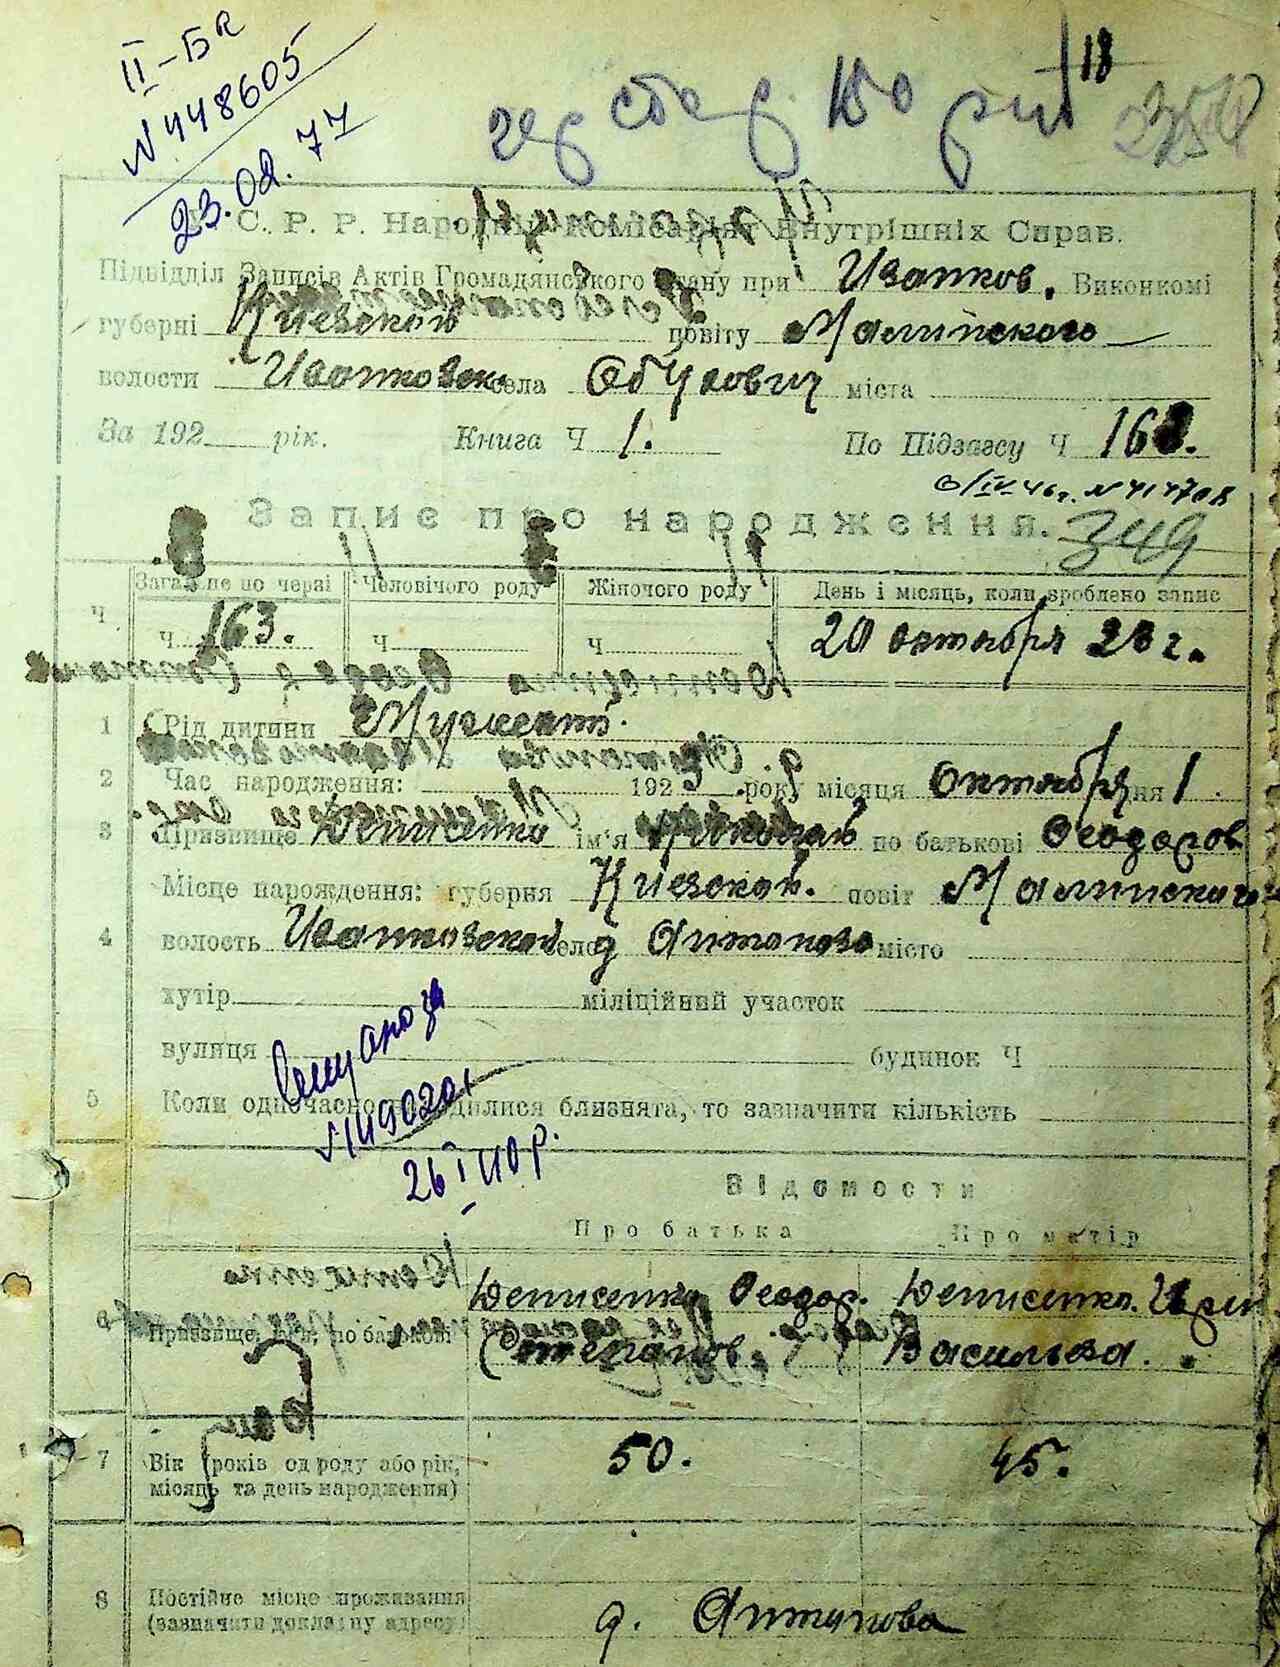 II-БК
N 448605
23.02.77
18
У. С. Р. Р. Народній Комісаріят Внутрішніх Справ.
Підвідділ Записів Актів Громадянського Стану при Иванков. Виконкомі
губерні Киевской повіту Малинского
волости Иванковск села Обуховичи міста
За 192 рік. Книга Ч 1. По Підзагсу Ч 163.
Запис про народження.
349
Загальне по черзі Чоловічого роду Жіночого роду День і місяць, коли зроблено запис
Ч Ч 163. Ч Ч 20 октября 23 г.
1 Рід дитини Мужской.
2 Час народження: 192 3 року місяця Октября дня 1
3 Призвище Денисенко ім'я Николай по батькові Феодоров
Місце народження: губерня Киевской. повіт Малинского
4 волость Иванковской село д Антоновка місто
хутір міліційний участок
вулиця будинок Ч
5 Коли одночасно народилися близнята, то зазначити кількість
N 1149020
26 I 40 р.
Відомости
Про батька Про матір
Денисенко Феодор. Денисенко Ирин
6 Призвище, ім'я, по батькові Степанов. Васильева.
7 Вік (років од роду або рік, місяць та день народження) 50. 45.
8 Постійне місце проживання
(зазначити докладну адресу) д. Антонова